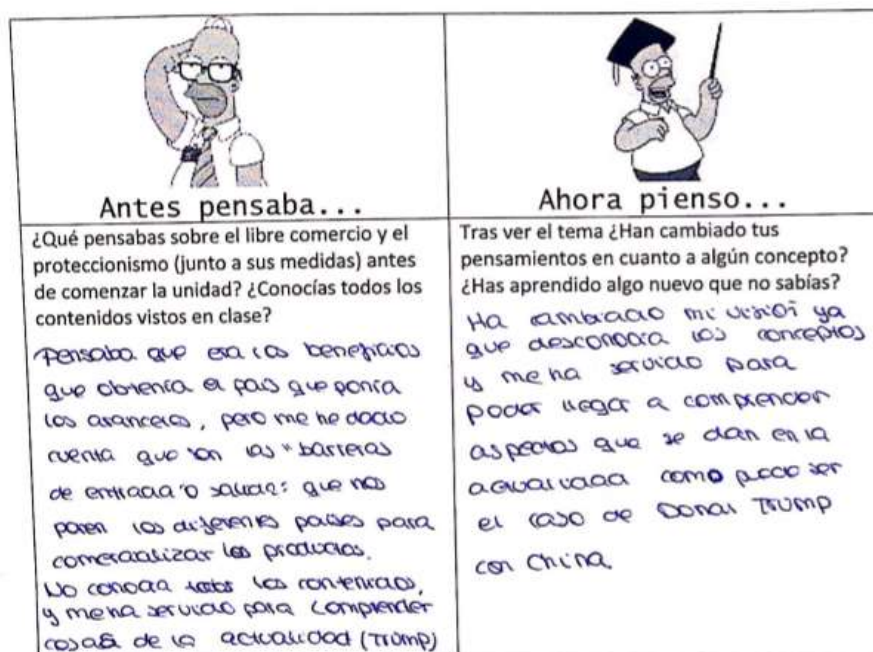 Antes pensaba...
¿Qué pensabas sobre el libre comercio y el
proteccionismo (junto a sus medidas) antes
de comenzar la unidad? ¿Conocías todos los
contenidos vistos en clase?
Pensaba que era los beneficios
que obtenía el país que ponía
los aranceles, pero me he dado
cuenta que son las "barreras
de entrada o salida" que nos
ponen los diferentes países para
comercializar los productos.
No conocía todos los contenidos,
y me ha servido para comprender
cosas de la actualidad (Trump)
Ahora pienso...
Tras ver el tema ¿Han cambiado tus
pensamientos en cuanto a algún concepto?
¿Has aprendido algo nuevo que no sabías?
Ha cambiado mi visión ya
que desconocía los conceptos
y me ha servido para
poder llegar a comprender
aspectos que se dan en la
actualidad como puede ser
el caso de Donal Trump
con China